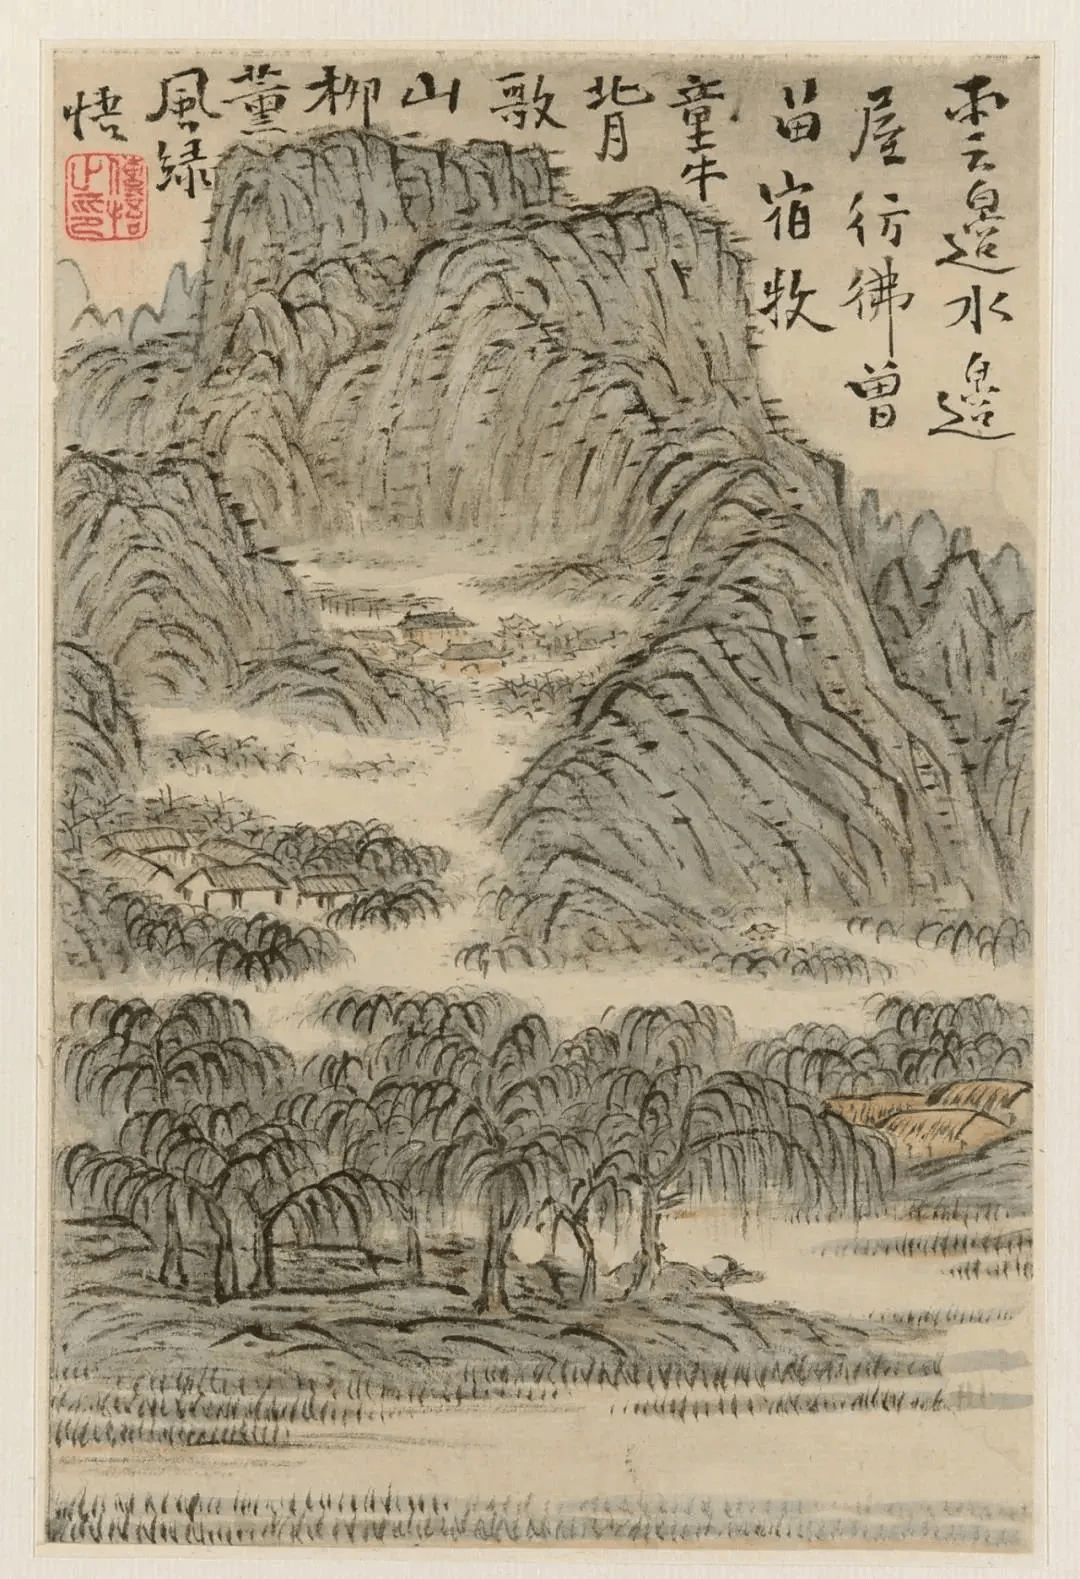 雲邊水邊
屋彷彿曾
畄宿牧
童牛
背
歌
山
柳
薰
風緑
悟
悟
之印